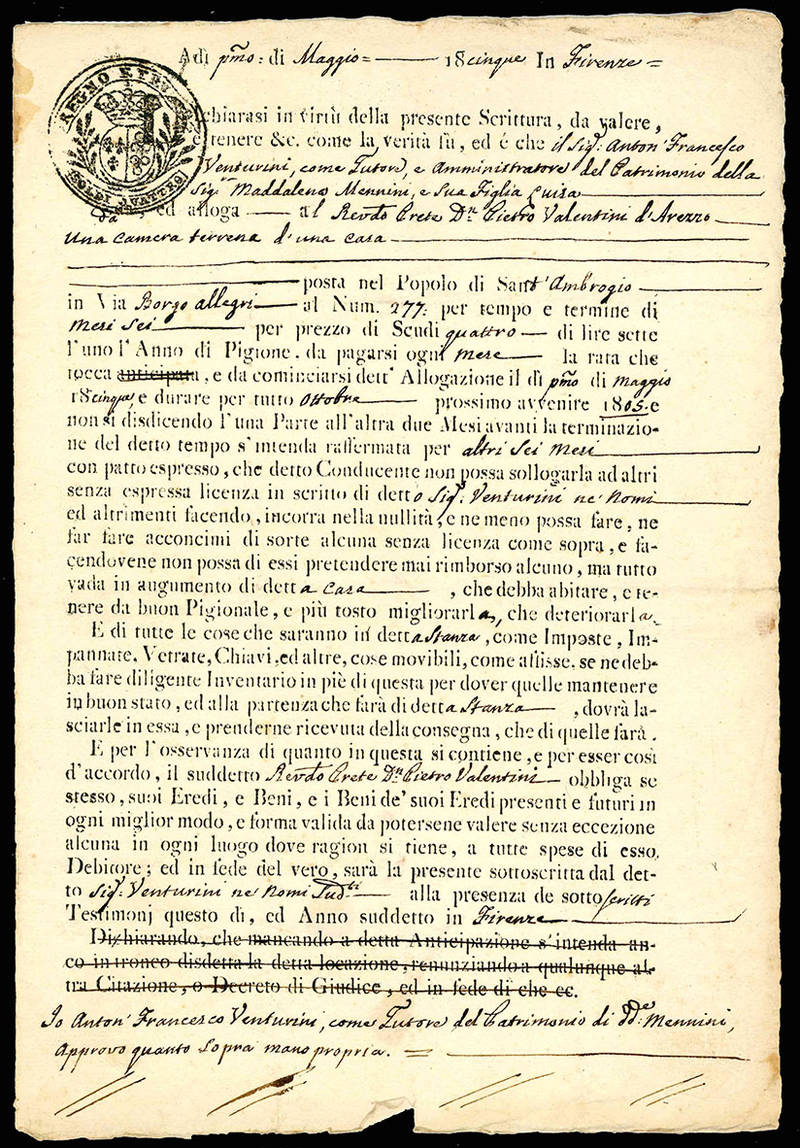 Adi pmo: di Maggio = 18cinque In Firenze =
REGNO ETRU
SOLDI QUATTRO
Dichiarasi in virtù della presente Scrittura, da valere,
e tenere &c. come la verità fù, ed é che il Sig: Anton' Francesco
Venturini, come Tutore, e Amministratore del Patrimonio della
Sig: Maddalena Mennini, e Sua Figlia Luisa
da, ed alloga al Revdo Prete Dn: Pietro Valentini d'Arezzo
Una Camera terrena d'una Casa
posta nel Popolo di Sant' Ambrogio
in Via Borgo allegri al Num. 277: per tempo e termine di
Mesi Sei per prezzo di Scudi quattro di lire sette
l'uno l'Anno di Pigione. da pagarsi ogni Mese la rata che
tocca anticipata, e da cominciarsi dett' Allogazione il dì pmo di Maggio
18cinque, e durare per tutto Ottobre prossimo avvenire 1805. e
non si disdicendo l'una Parte all'altra due Mesi avanti la terminazio-
ne del detto tempo s'intenda raffermata per altri Sei Mesi
con patto espresso, che detto Conducente non possa sollogarla ad altri
senza espressa licenza in scritto di detto Sig: Venturini ne' Nomi
ed altrimenti facendo, incorra nella nullità, e ne meno possa fare, ne
far fare acconcimi di sorte alcuna senza licenza come sopra, e fa-
cendovene non possa di essi pretendere mai rimborso alcuno, ma tutto
vada in augumento di detta Casa, che debba abitare, e te-
nere da buon Pigionale, e più tosto migliorarla, che deteriorarla.
E di tutte le cose che saranno in detta Stanza, come Imposte, Im-
pannate. Vetrate, Chiavi, ed altre, cose movibili, come affisse. se ne deb-
ba fare diligente Inventario in piè di questa per dover quelle mantenere
in buon stato, ed alla partenza che farà di detta Stanza, dovrà la-
sciarle in essa, e prenderne ricevuta della consegna, che di quelle farà.
E per l'osservanza di quanto in questa si contiene, e per esser così
d'accordo, il suddetto Revdo Prete Dn: Pietro Valentini obbliga se
stesso, suoi Eredi, e Beni, e i Beni de' suoi Eredi presenti e futuri in
ogni miglior modo, e forma valida da potersene valere senza eccezione
alcuna in ogni luogo dove ragion si tiene, a tutte spese di esso.
Debitore; ed in fede del vero, sarà la presente sottoscritta dal det-
to Sig: Venturini ne' Nomi Sudti alla presenza de sottoscritti
Testimonj questo dì, ed Anno suddetto in Firenze
Dichiarando, che mancando a detta Anticipazione s'intenda an-
co in tronco disdetta la detta locazione, renunziando a qualunque al-
tra Citazione, o Decreto di Giudice, ed in fede di che ec.
Io Anton' Francesco Venturini, come Tutore del Patrimonio di dde: Mennini,
Approvo quanto Sopra mano propria. =